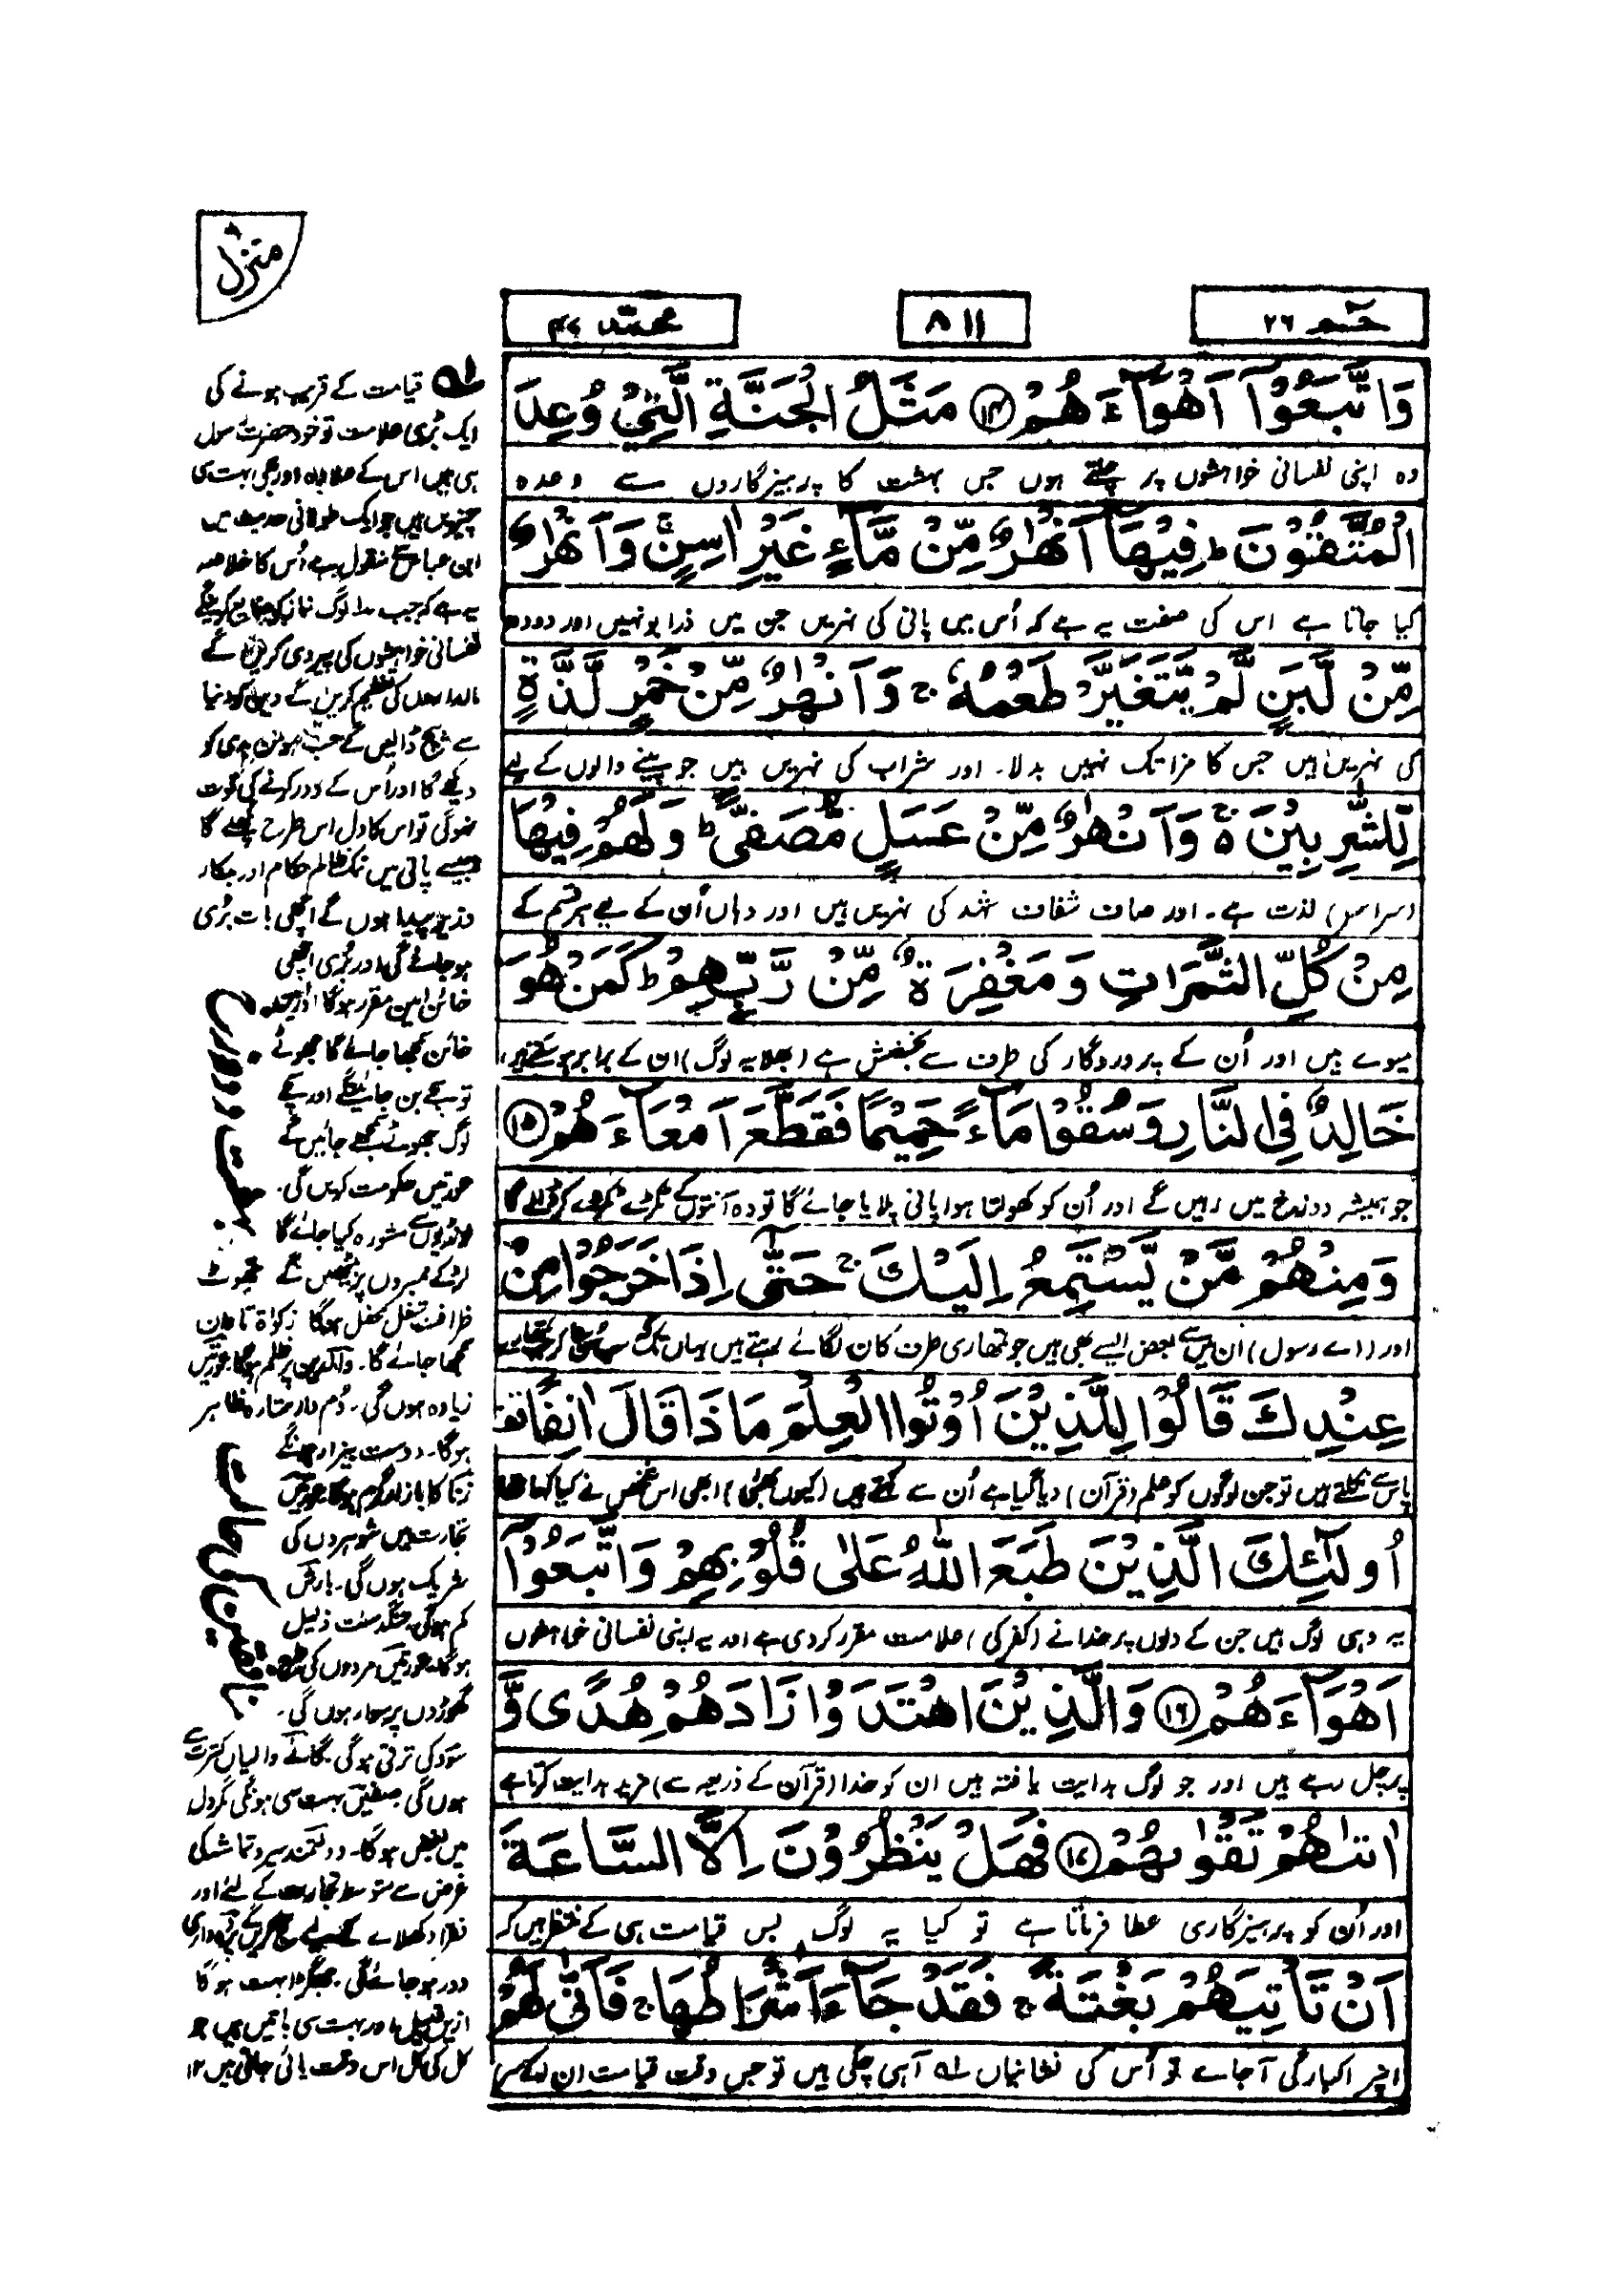 منزل
حٰمٓ ۲۶
۸۱۱
محمّد ۴۷
وَاتَّبَعُوْٓا اَهْوَآءَهُمْ ۝۱۴ مَثَلُ الْجَنَّةِ الَّتِیْ وُعِدَ
وہ اپنی نفسانی خواہشوں پر چلتے ہوں جس بہشت کا پرہیزگاروں سے وعدہ
الْمُتَّقُوْنَ ؕ فِیْهَاۤ اَنْهٰرٌ مِّنْ مَّآءٍ غَیْرِ اٰسِنٍ ۚ وَاَنْهٰرٌ
کیا جاتا ہے اس کی صفت یہ ہے کہ اُس میں پانی کی نہریں جن میں ذرا بو نہیں اور دودھ
مِّنْ لَّبَنٍ لَّمْ یَتَغَیَّرْ طَعْمُهٗ ۚ وَاَنْهٰرٌ مِّنْ خَمْرٍ لَّذَّةٍ
کی نہریں ہیں جس کا مزا تک نہیں بدلا۔ اور شراب کی نہریں ہیں جو پینے والوں کے لیے
لِّلشّٰرِبِیْنَ ۚ۬ وَاَنْهٰرٌ مِّنْ عَسَلٍ مُّصَفًّی ؕ وَلَهُمْ فِیْهَا
(سراسر) لذت ہے۔ اور صاف شفاف شہد کی نہریں ہیں اور وہاں اُن کے لیے ہر قسم کے
مِنْ كُلِّ الثَّمَرٰتِ وَمَغْفِرَةٌ مِّنْ رَّبِّهِمْ ؕ كَمَنْ هُوَ
میوے ہیں اور اُن کے پروردگار کی طرف سے بخشش ہے (بھلا یہ لوگ) ان کے برابر ہو سکتے ہیں
خَالِدٌ فِی النَّارِ وَسُقُوْا مَآءً حَمِیْمًا فَقَطَّعَ اَمْعَآءَهُمْ ۝۱۵
جو ہمیشہ دوزخ میں رہیں گے اور اُن کو کھولتا ہوا پانی پلایا جائے گا تو وہ آنتوں کے ٹکڑے ٹکڑے کر ڈالے گا
وَمِنْهُمْ مَّنْ یَّسْتَمِعُ اِلَیْكَ ۚ حَتّٰٓی اِذَا خَرَجُوْا مِنْ
اور (اے رسول) ان میں سے بعض ایسے بھی ہیں جو تمہاری طرف کان لگائے رہتے ہیں یہاں تک کہ سب سنا کر جب تمہارے
عِنْدِكَ قَالُوْا لِلَّذِیْنَ اُوْتُوا الْعِلْمَ مَاذَا قَالَ اٰنِفًا قف
پاس سے نکلتے ہیں تو جن لوگوں کو علم (قرآن) دیا گیا ہے اُن سے کہتے ہیں (کیوں بھئی) ابھی اس شخص نے کیا کہا تھا
اُولٰٓئِكَ الَّذِیْنَ طَبَعَ اللّٰهُ عَلٰی قُلُوْبِهِمْ وَاتَّبَعُوْٓا
یہ وہی لوگ ہیں جن کے دلوں پر خدا نے (کفر کی) علامت مقرر کر دی ہے اور یہ اپنی نفسانی خواہشوں
اَهْوَآءَهُمْ ۝۱۶ وَالَّذِیْنَ اهْتَدَوْا زَادَهُمْ هُدًی وَّ
پر چل رہے ہیں اور جو لوگ ہدایت یافتہ ہیں ان کو خدا (قرآن کے ذریعہ سے) مزید ہدایت کرتا ہے
اٰتٰىهُمْ تَقْوٰىهُمْ ۝۱۷ فَهَلْ یَنْظُرُوْنَ اِلَّا السَّاعَةَ
اور اُن کو پرہیزگاری عطا فرماتا ہے تو کیا یہ لوگ بس قیامت ہی کے منتظر ہیں کہ
اَنْ تَاْتِیَهُمْ بَغْتَةً ۚ فَقَدْ جَآءَ اَشْرَاطُهَا ۚ فَاَنّٰی لَهُمْ
اُنپر اکبارگی آجائے تو اُس کی نشانیاں لہ آہی چکی ہیں تو جس وقت قیامت ان کے سر
لہ قیامت کے قریب ہونے کی
ایک بُری علامت تو خود حضرت رسول
ہی ہیں اس کے علاوہ اور بھی بہت سی
چیزیں ہیں جو ایک طولانی حدیث میں
ابن عباس سے منقول ہے اُس کا خلاصہ
یہ ہے کہ جب لوگ نماز کو ضایع کرینگے
نفسانی خواہشوں کی پیروی کریں گے
مالداروں کی تعظیم کریں گے دین کو دنیا
سے بیچ ڈالیں گے جب مومن بدی کو
دیکھے گا اور اُس کے دور کرنے کی قوت
نہوگی تو اس کا دل اس طرح پگھلے گا
جیسے پانی میں نمک ظالم حکام اور بدکار
وزیر پیدا ہوں گے اچھی بات بُری
ہوجائے گی اور بُری اچھی
خائن امین مقرر ہوگا اور امین
خائن سمجھا جائے گا جھوٹے
تو سچے بن جائینگے اور سچے
لوگ جھوٹے سمجھے جائیں گے
عورتیں حکومت کریں گی۔
لونڈیوں سے مشورہ کیا جائے گا
لڑکے ممبروں پر بیٹھیں گے جھوٹ
ظرافت شغل محفل ہوگا زکوٰۃ تاوان
سمجھا جائے گا۔ والدین پر ظلم ہوگا عورتیں
زیادہ ہوں گی۔ دُم دار ستارہ ظاہر
ہوگا۔ دوست بیزار ہونگے
زنا کا بازار گرم ہوگا عورتیں
تجارت میں شوہروں کی
شریک ہوں گی۔ بارش
کم ہوگی سنت ذلیل
ہوگا۔ عورتیں مردوں کی
گھوڑوں پر سوار ہوں گی۔
سود کی ترقی ہوگی گانے والیاں کثرت سے
ہوں گی صفیں بہت سی ہونگی مگر دل
میں بغض ہوگا۔ دولتمند سیر و تماشہ کی
غرض سے متوسط تجارت کے لئے اور
فقرا دکھلاوے کے لیے حج کریں گے
دور ہوجائے گی جھگڑا بہت ہوگا
ازیں قبیل اور بہت سی باتیں ہیں جو
کل کی کل اس وقت پائی جاتی ہیں ۱۲